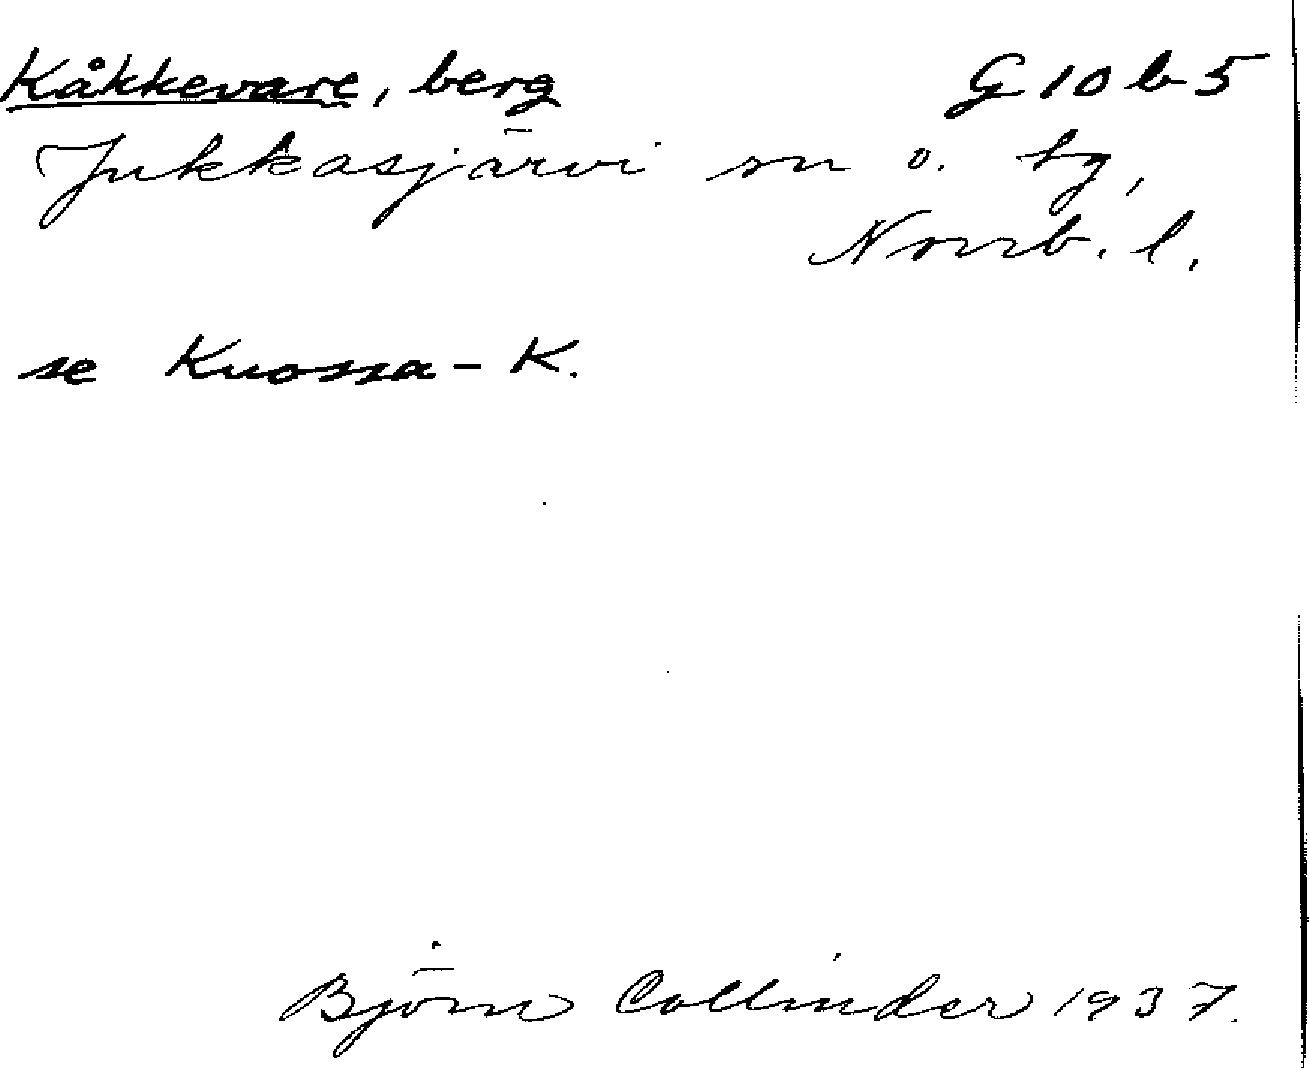 Kåkkevare, berg G 10 b 5
Jukkasjärvi sn o. tg,
Norrb. l.
se Kuossa-K.
Björn Collinder 1937.